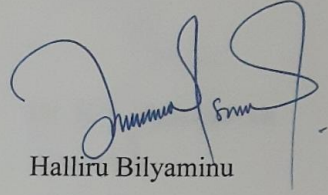 Halliru Bilyaminu